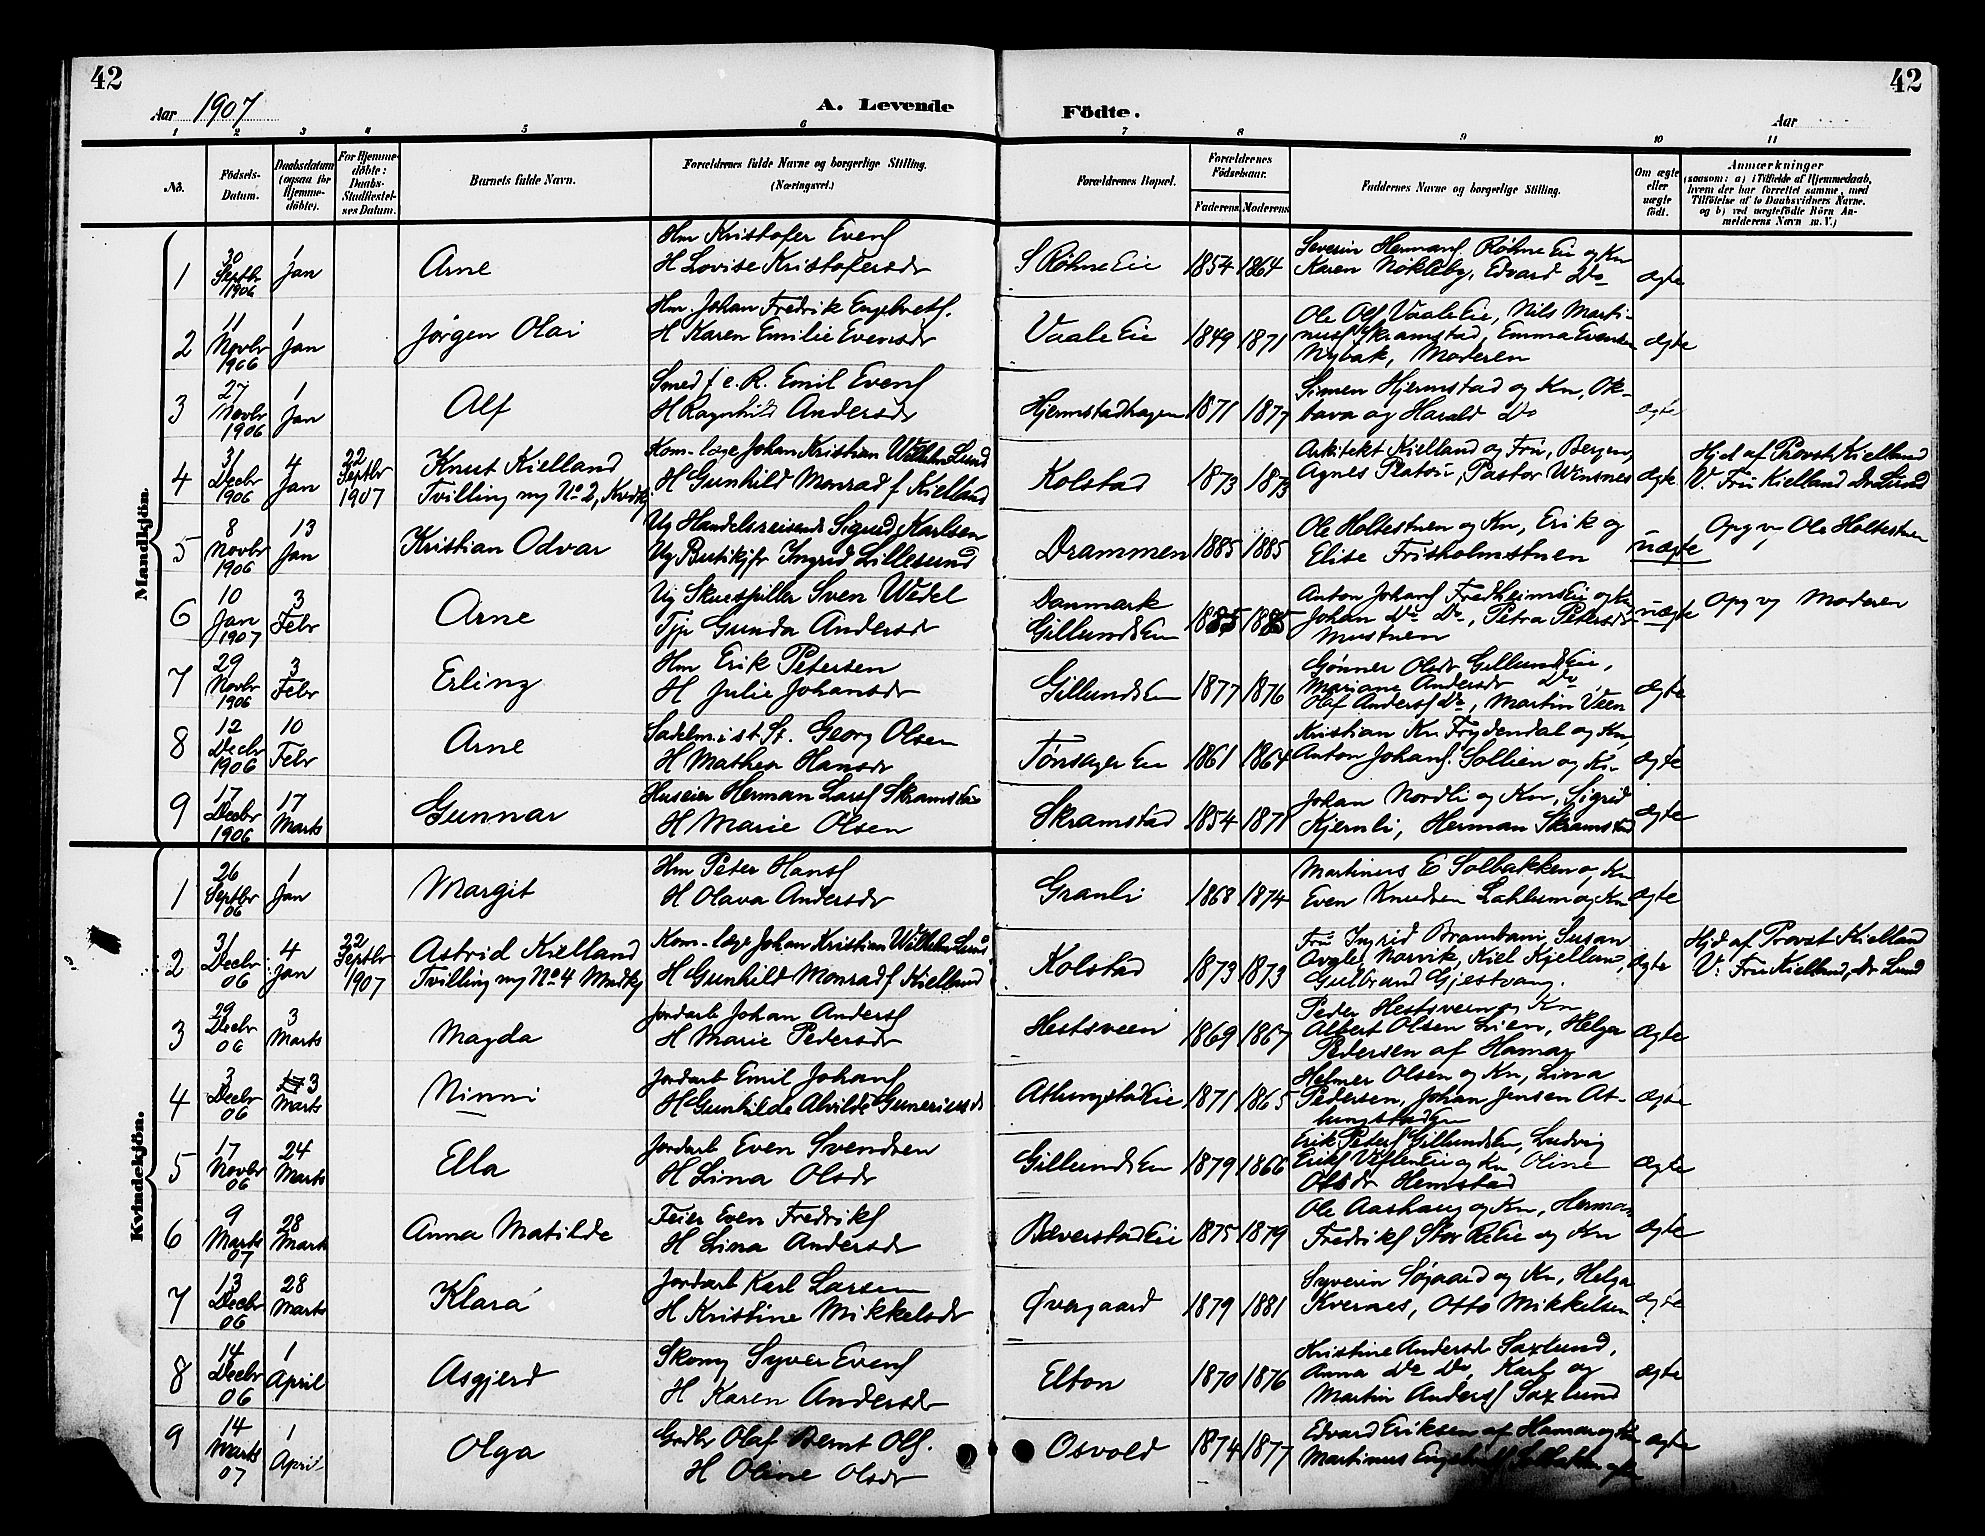 42
42
Aar 1907
A. Levende Födte.
Aar
1 2 3 4 5 6 7 8 9 10 11
No.
Födsels-Datum.
Daabsdatum (ogsaa for Hjemme-döbte).
For Hjemme-döbte: Daabs-Stadfæstel-ses Datum.
Barnets fulde Navn.
Forældrenes fulde Navne og borgerlige Stilling. (Næringsvei.)
Forældrenes Bopæl.
Forældrenes Födselsaar.
Faderens. Moderens.
Faddernes Navne og borgerlige Stilling.
Om ægte eller uægte födt.
Anmærkninger
(saasom: a) i Tilfælde af Hjemmedaab, hvem der har forrettet samme, med Tilföielse af to Daabsvidners Navne. og b) ved uægtefödte Börn An-melderens Navn m. V.)
Mandkjön.
1 30 Septbr 1906 1 Jan Arne
Hm Kristofer Evens
H Lovise Kristofersdr
S Røhne Eie 1854 1864
Severin Hermans Røhne Eie og Kn
Karen Nøkleby, Edvard Do
ægte
2 11 Novbr 1906 1 Jan Jørgen Olai
Hm Johan Fredrik Engebrets.
H Karen Emilie Evensdr
Vaale Eie 1849 1871
Ole Ols Vaale Eie, Nils Marti-
nus Skramstad, Emma Evensen
Nybak, Moderen
ægte
3 27 Novbr 1906 1 Jan Alf
Smed f e. R. Emil Evens
H Ragnhild Andersdr
Hjermstadhagen 1871 1877
Simen Hjermstad og Kn, Ok-
tava og Harald Do
ægte
4 31 Decbr 1906 4 Jan 22 Septbr 1907
Knut Kielland
Tvilling m No 2, Kvdkj.
Kom-læge Johan Kristian Wilhelm Lund
H Gunhild Monrad f Kielland
Kolstad 1873 1873
Arkitekt Kielland og Frü, Bergen,
Agnes Platou, Pastor Winsnes
ægte
Hjd af Provst Kielland
V. Frü Kielland Dr Lund
5 8 Novbr 1906 13 Jan Kristian Odvar
Ug Handelsreisende Sigurd Karlsen
Ug Butikjfr Ingrid Lillesund
Drammen 1885 1885
Ole Holtestuen og Kn, Erik og
Elise Frisholmstuen
uægte
Opg v Ole Holtestuen
6 10 Jan 1907 3 Febr Arne
Ug Skuespiller Sven Wedel
Tjp Gunda Andersdr
Danmark
Gillunds En 1885 1885
Anton Johans Fredheims Eie og Kn
Johan Do Do, Petra Petersdr
Mustuen
uægte
Opg v Moderen
7 29 Novbr 1906 3 Febr Erling
Hm Erik Petersen
H Julie Johansdr
Gillunds En 1877 1876
Gønner Olsdr Gillunds Eie,
Mariane Andersdr Do,
Olaf Anders Do, Martin Veen
ægte
8 12 Decbr 1906 10 Febr Arne
Sadelm i st St. Georg Olsen
H Mathea Hansdr
Tønsager Eie 1861 1864
Kristian Kn Frydendal og Kn,
Anton Johans. Sollien og Kn
ægte
9 17 Decbr 1906 17 Marts Gunnar
Huseier Herman Lars Skramstad
H Marie Olsen
Skramstad 1854 1871
Johan Nordli og Kn, Sigrid
Kjernli, Herman Skramstad
ægte
Kvindekjön.
1 26 Septbr 06 1 Jan Margit
Hm Peter Hans
H Olava Andersdr
Granli 1868 1874
Martinus E Solbakken og Kn
Even Knudsen Lahlum og Kn
ægte
2 31 Decbr 06 4 Jan 22 Septbr 1907
Astrid Kielland
Tvilling m No 4 Mndkj
Kom-læge Johan Kristian Wilhelm Lund
H Gunhild Monrad f Kielland
Kolstad 1873 1873
Frü Ingrid Brambani, Susan
Narvik, Kiel Kjelland,
Gulbrand Gjestvang.
ægte
Hjd af Provst Kielland
V: Frü Kielland, Dr Lund
3 29 Decbr 06 3 Marts Magda
Jordarb Johan Anders
H Marie Pedersdr
Hestsveen 1869 1867
Peder Hestsveen og Kn
Albert Olsen Lien, Helga
Pedersen af Hamar
ægte
4 3 Decbr 06 3 Marts Ninni
Jordarb Emil Johans
H Gunhilde Alvilde Guneriusdr
Atlungstad Eie 1871 1865
Helmer Olsen og Kn, Lina
Pedersen, Johan Jensen At-
lungstad En
ægte
5 17 Novbr 06 24 Marts Ella
Jordarb Even Svendsen
H Lina Olsdr
Gillunds En 1879 1866
Erik Peders Gillunds En, Ludvig
Eriks Viflen Eie og Kn Oline
Olsdr Hemstad
ægte
6 9 Marts 07 28 Marts Anna Matilde
Feier Even Fredriks
H Lina Andersdr
Bæverstad Eie 1875 1879
Ole Aashaug og Kn, Herman
Fredriks Stor Re Eie og Kn
ægte
7 13 Decbr 06 28 Marts Klara
Jordarb Karl Larsen
H Kristine Mikkelsdr
Øvergaard 1879 1881
Syverin Søgaard og Kn, Helga
Kvernes, Otto Mikkelsen
ægte
8 14 Decbr 06 1 April Asgjerd
Skomg Syver Evens
H Karen Andersdr
Elton 1870 1876
Kristine Andersd Saxlund,
Anna Do Do, Karl og
Martin Anders Saxlund
ægte
9 14 Marts 07 1 April Olga
Grdbr Olaf Bernt Ols.
H Oline Olsdr
Osvold 1874 1877
Edvard Eriksen af Hamar og Kn
Martinus Solbakken
ægte